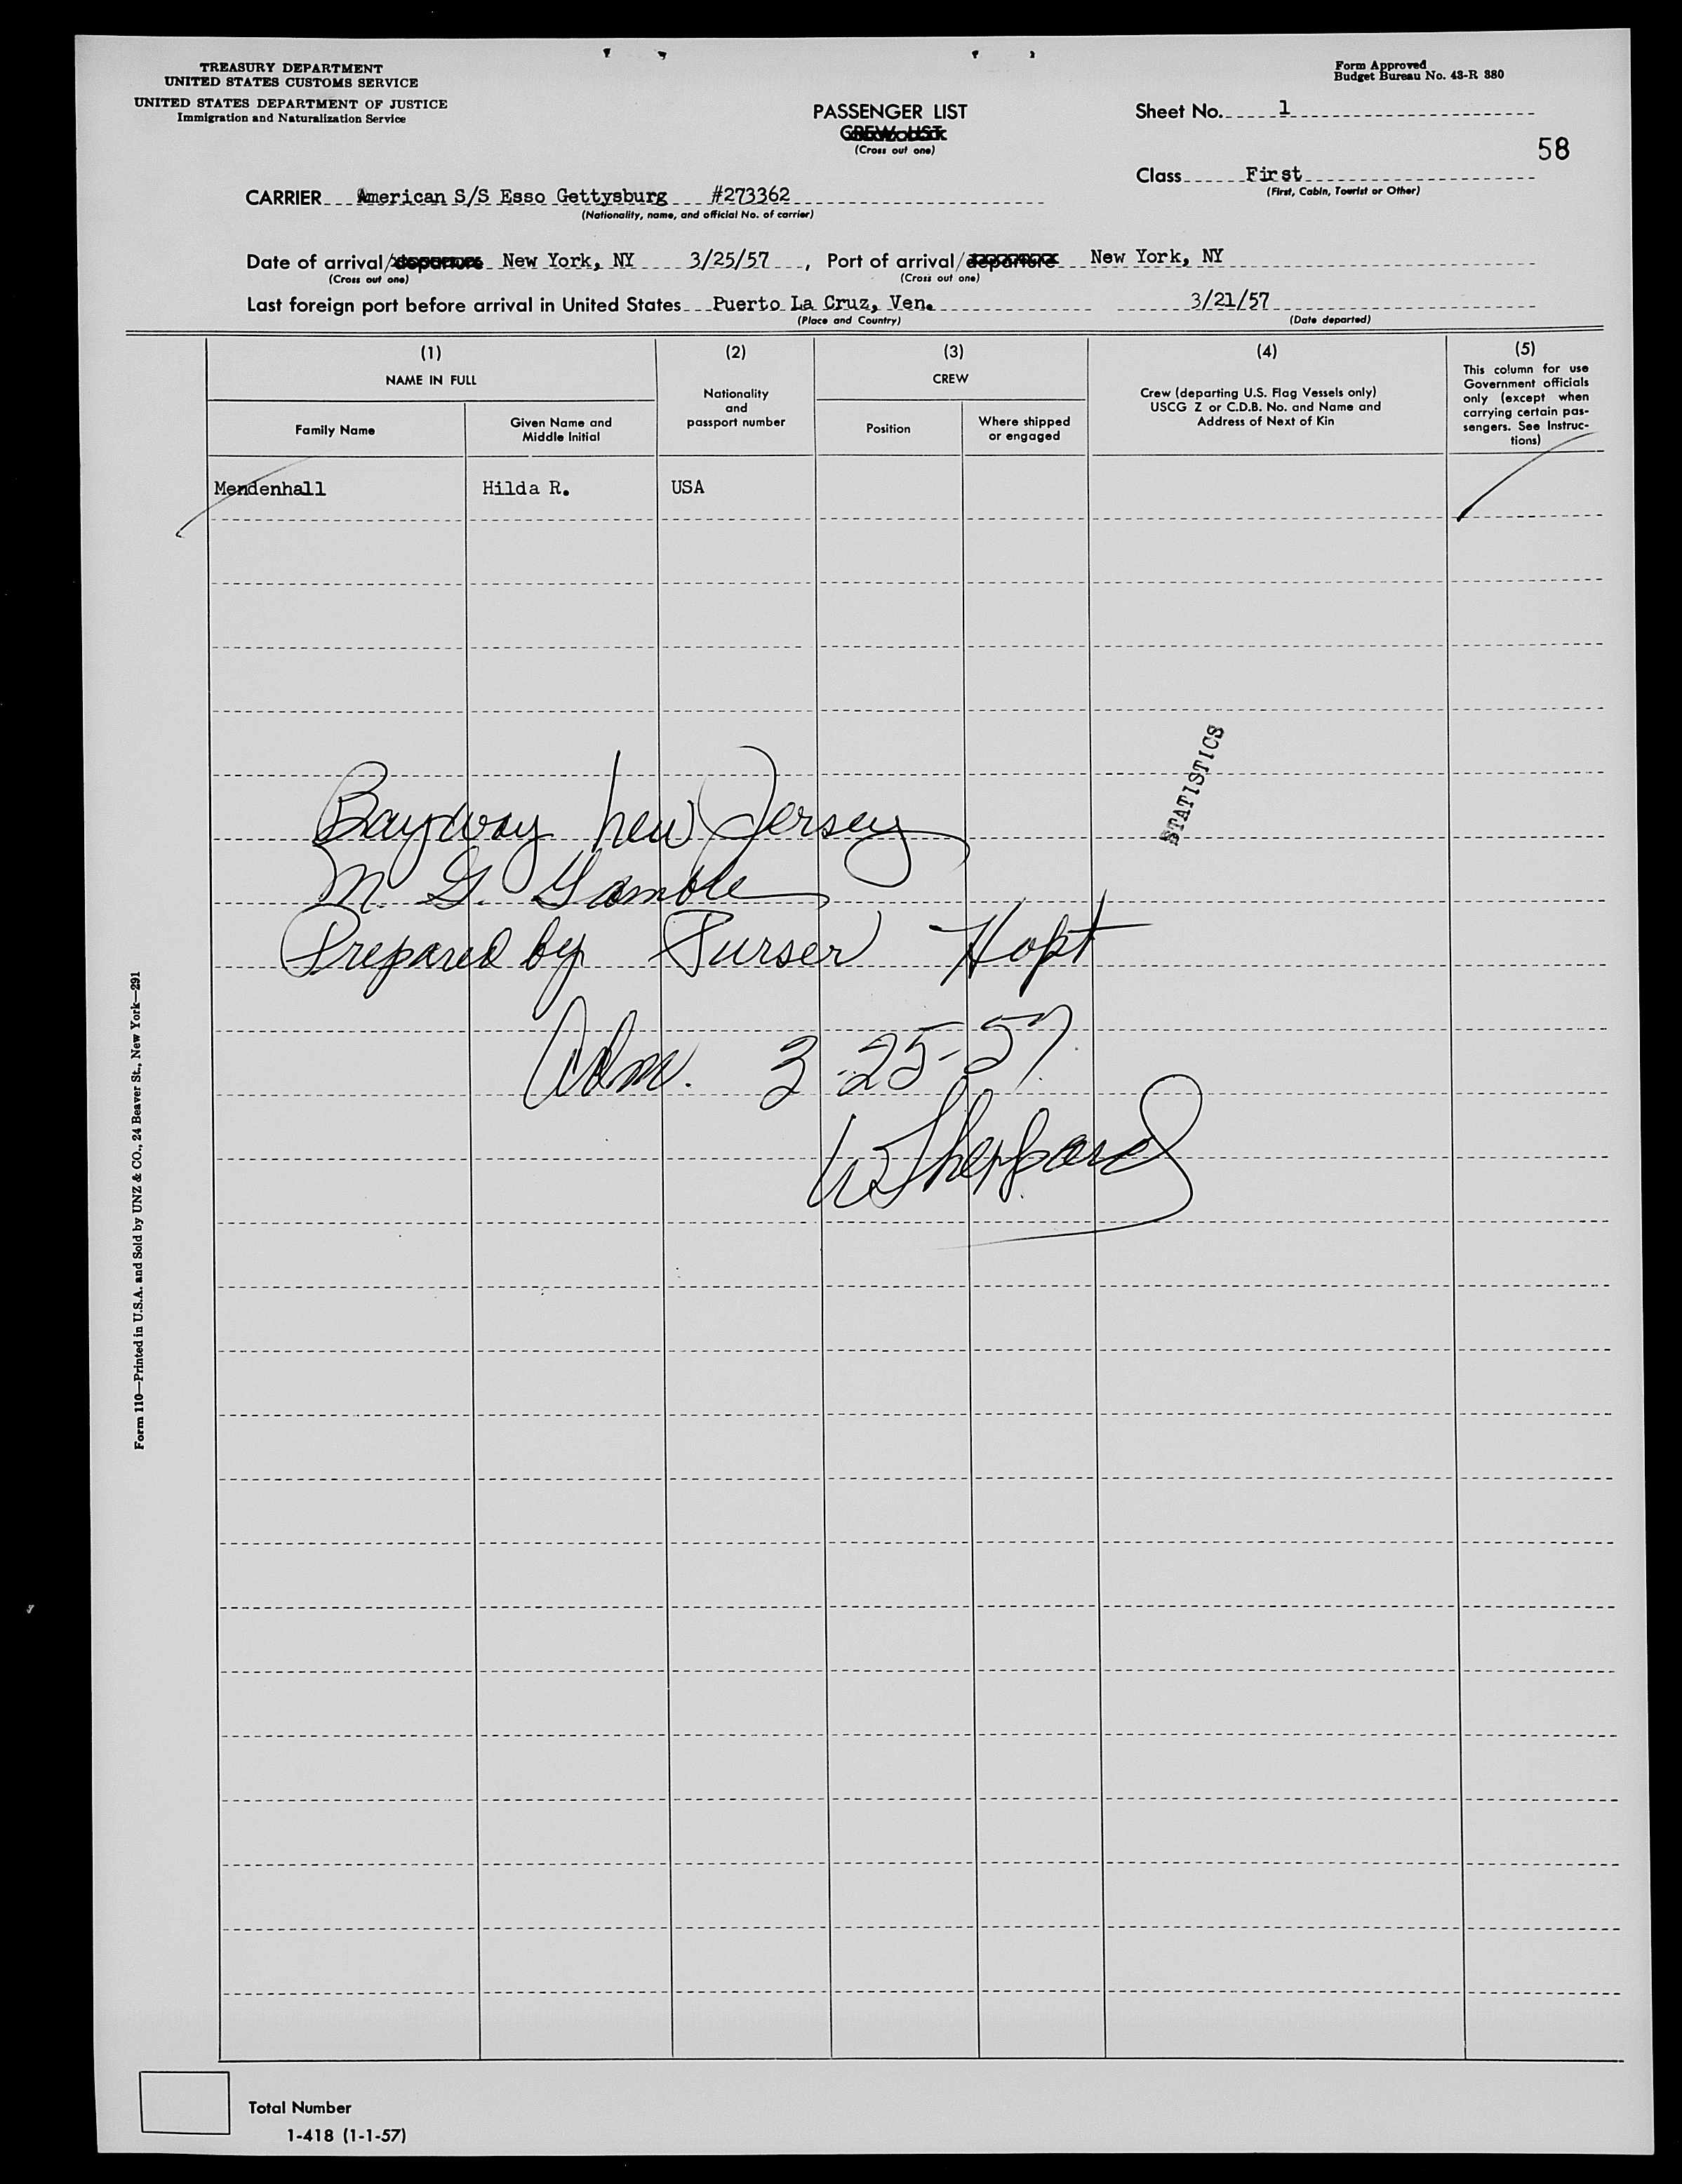 TREASURY DEPARTMENT
UNITED STATES CUSTOMS SERVICE
UNITED STATES DEPARTMENT OF JUSTICE
Immigration and Naturalization Service
Form Approved
Budget Bureau No. 43-R 380
PASSENGER LIST
CREW LIST
(Cross out one)
Sheet No. 1
58
Class First
(First, Cabin, Tourist or Other)
CARRIER American S/S Esso Gettysburg #273362
(Nationality, name, and official No. of carrier)
Date of arrival/departure New York, NY 3/25/57, Port of arrival/departure New York, NY
(Cross out one) (Cross out one)
Last foreign port before arrival in United States Puerto La Cruz, Ven. 3/21/57
(Place and Country) (Date departed)
(1) (2) (3) (4) (5)
NAME IN FULL
Family Name
Given Name and
Middle Initial
Nationality
and
passport number
CREW
Position
Where shipped
or engaged
Crew (departing U.S. Flag Vessels only)
USCG Z or C.D.B. No. and Name and
Address of Next of Kin
This column for use
Government officials
only (except when
carrying certain pas-
sengers. See Instruc-
tions)
Mendenhall Hilda R. USA
STATISTICS
Bayway New Jersey
M. G. Gamble
Prepared by Purser Hopt
Adm. 3-25-57
W Sheppard
Form 110—Printed in U.S.A. and Sold by UNZ & CO., 24 Beaver St., New York—291
Total Number
1-418 (1-1-57)